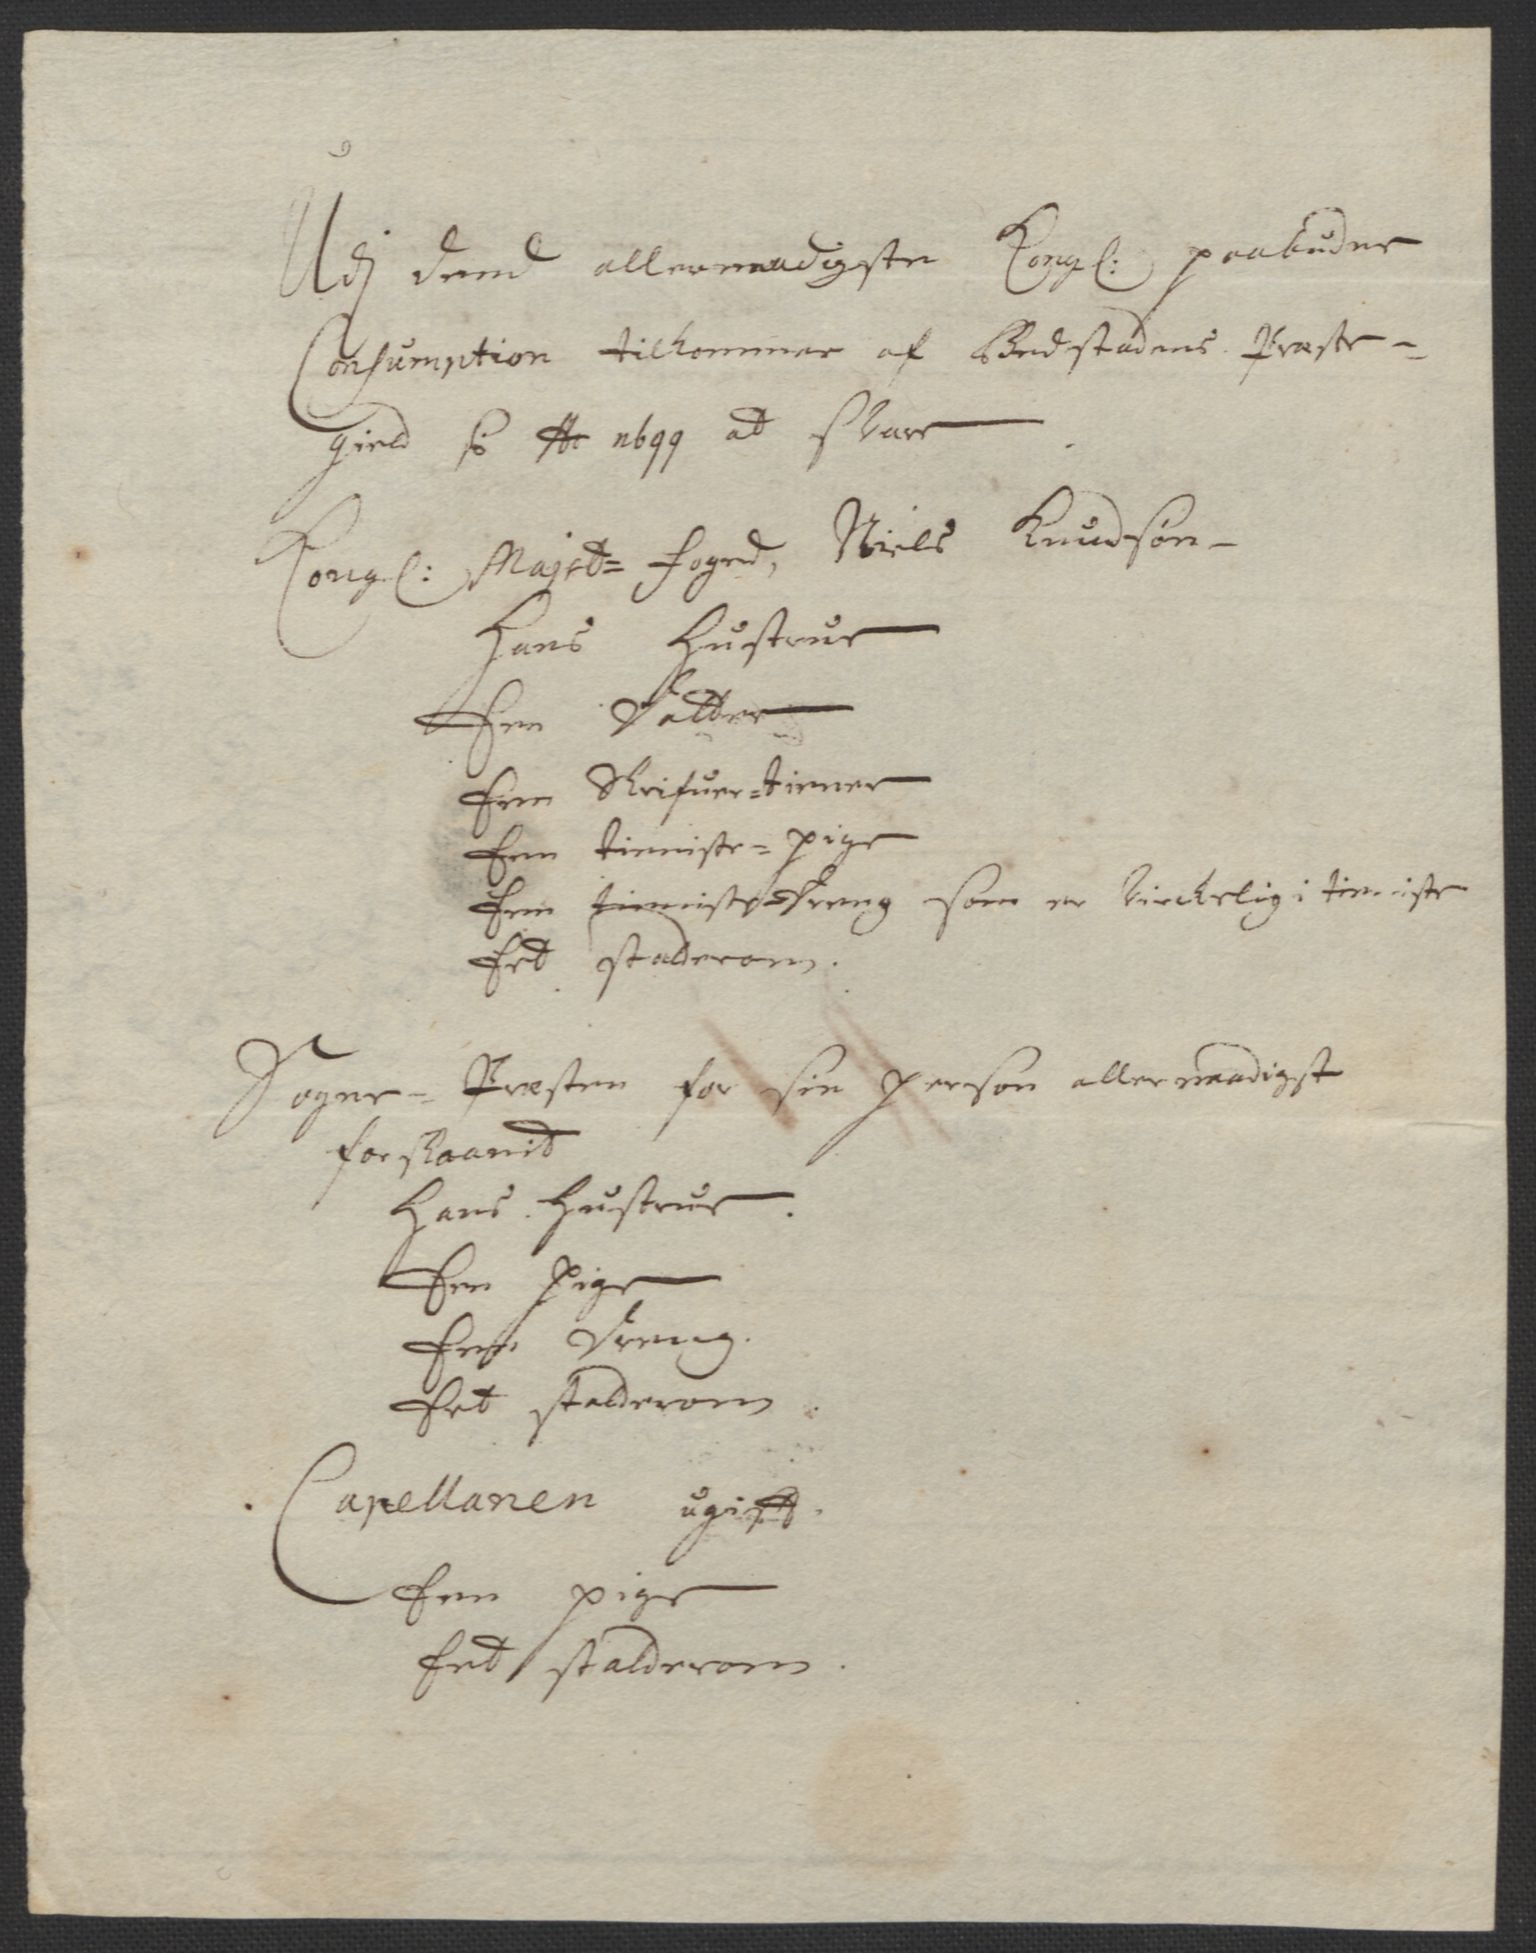 Udj dend allernaadigste Kongl: paabudne
Consumption tilkommer af Bedstadens Præste-
gield p̱ Ao 1699 at svare
Kongl: Majst= foged, Niels Knudsøn-
Hans Hustrue
Een Datter
Een Skrifuer=tiener
Een tieniste=pige
Een tieniste=dreng som er virkelig i tieniste
Eet stalderom.
Sogne-Præsten for sin person allernaadigst
forskaanit
Hans Hustrue.
Een Pige
Een dreng.
Eet stalderom.
Capellanen ugift.
Een pige
Eet stalderom.